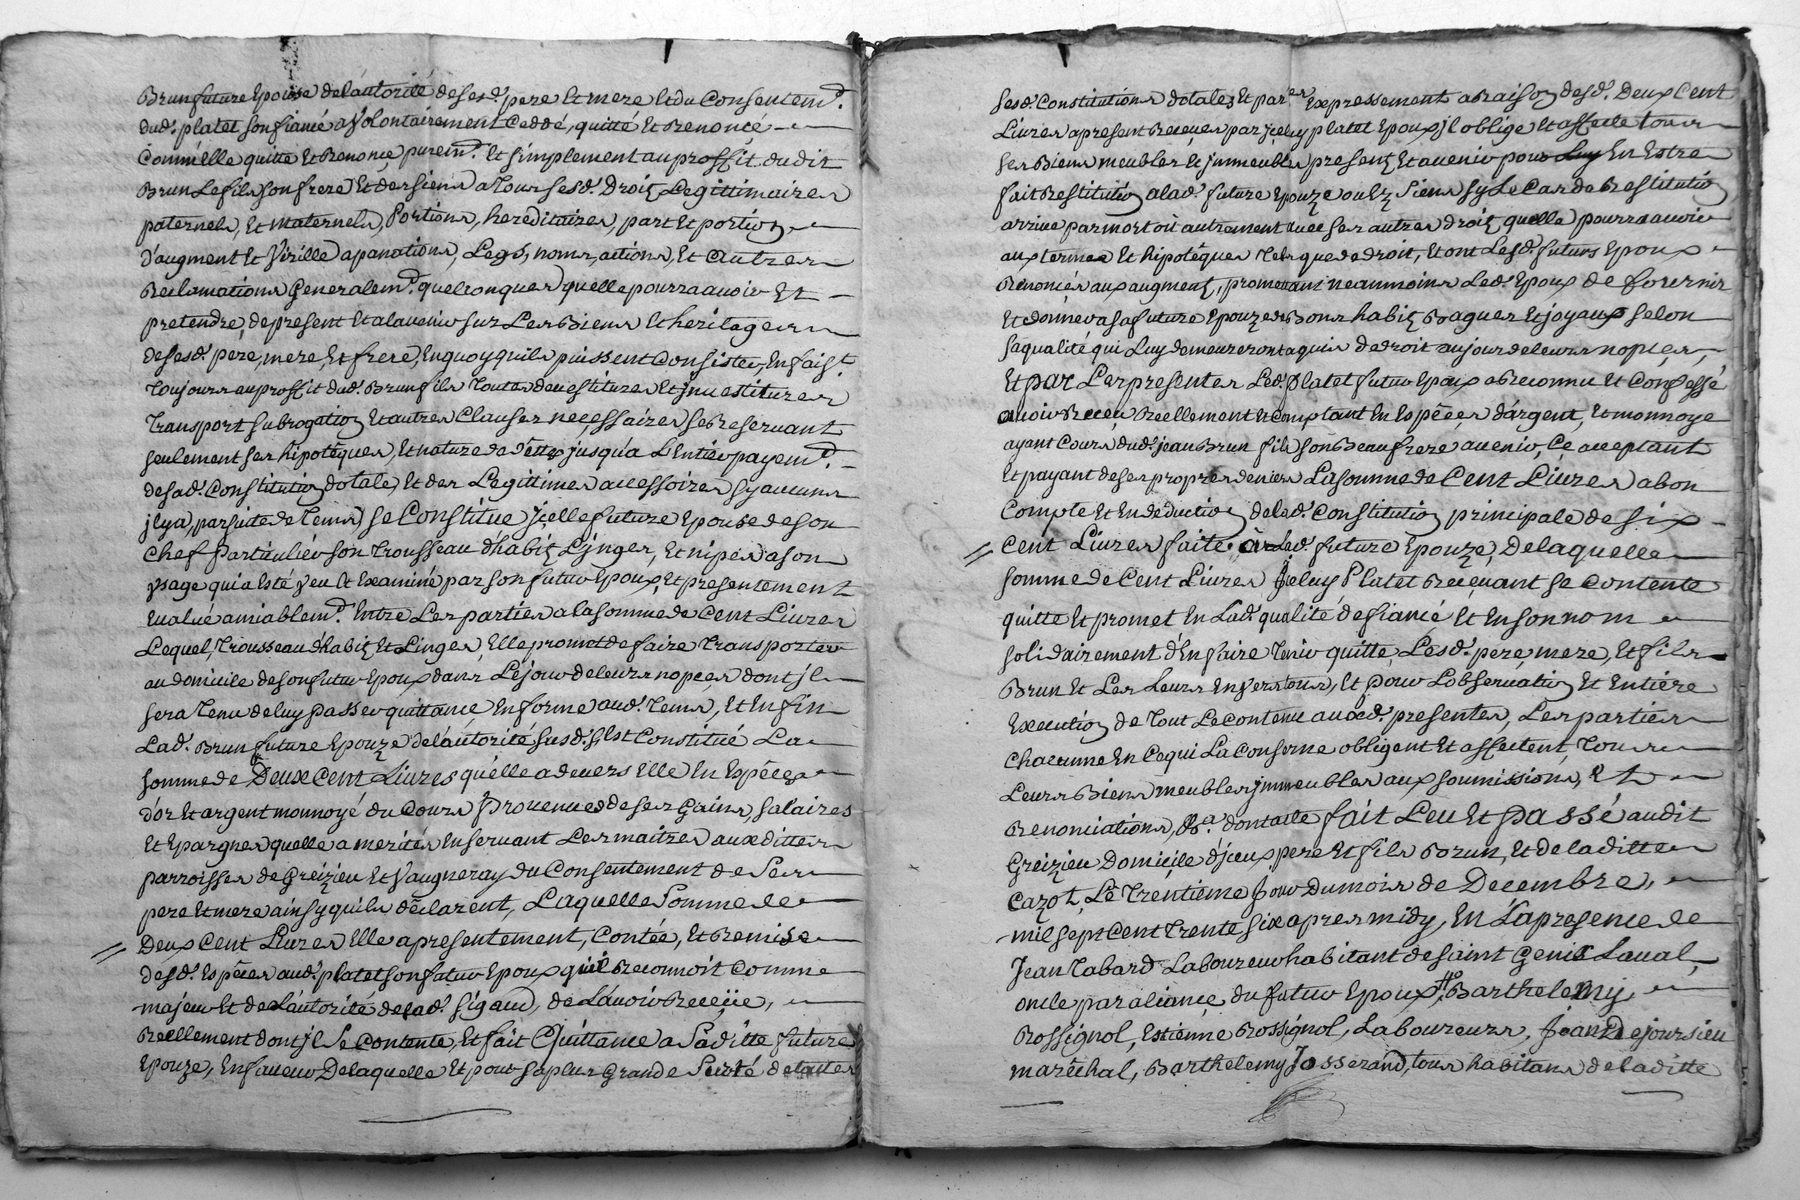 Brun future Epouse de l'autorité de sesd. pere Et mere Et du Consentem.t
dud. platet son fiancé a Volontairement Ceddé, quitté Et Renoncé
Comm'Elle quitte Et Renonce purem.t Et simplement au proffit dudit
Brun Le fils son frere Et des siens a Tous sesd. Droitz Legittimaires
paternels, Et maternels, Portions, hereditaires, part Et portion
d'augment Et Virille apanations, Legs, noms, actions, Et autres
Reclamations Generalem.t quelconques quelle pourra avoir Et
pretendre, de present Et alavenir sur Les Biens Et heritages
de sesd. pere, mere, Et frere, En quoy quils puissent Consister, En fais.t
Toujours au proffit dud. Brun fils Toutes devestitures Et jnvestitures
Transport subrogation Et autres Clauses necessaires se Reservant
seulement ses hipoteques, Et nature de dette jusqu'a L'Entier payem.t
de sad. Constitution dotale, Et des Legittimes accessoires sy aucuns
jl y a, par suite de Tems, se Constitue Jcelle future Epouse de son
Chef Particulier son Trousseau d'habitz Linges, Et nipes a son
Vsage qui a Esté Veu Et Examiné par son futur Epoux, Et presentement
Evalué amiablem.t Entre Les parties a la somme de Cent Livres
Lequel, Trousseau d'habitz Et Linges, Elle promet de faire Transporter
au domicile de son futur Epoux dans Le jour de leurs nopces dont jl
sera Tenu de luy passer quittance En forme aud. Tems, Et Enfin
Lad. Brun future Epouze de l'autorité susd. s'Est Constitué La
somme de Deux Cent Livres qu'elle a devers Elle En Espéces
d'or Et argent monnoyé du Cours Provenues de ses Gains, salaires
Et Epargnes quelle a merités En servant Les maitres aux dittes
parroisses de Greizieu Et Vaugneray du Consentement de Ses
pere Et mere ainsy quils déclarent, Laquelle Somme de
Deux Cent Livres Elle a presentement, Contée, Et Remise
desd. Espéces aud. platet son futur Epoux qui Reconnoit Comme
majeur Et de l'autorité de lad. Sigaud, de L'avoir Receüe,
Réellement dont jl Se Contente, Et fait Quittance a Saditte future
Epouze, En faveur De laquelle Et pour sa plus Grande Sureté de

sesd. Constitutions dotales, Et par Er Expressement a Raison desd. Deux Cent
Livres a present Receües par jceluy platet Epoux jl oblige Et affecte tous
ses Biens meubles Et jmmeubles presentz Et avenir pour Luy En Estre
fait Restitution a lad. future Epouze ou Ez Siens sy Le Cas de Restitution
arrive par mort où autrement avec ses autres droitz quelle pourra avoir
aux termes Et hipoteques Tels que de droit, Et ont Lesd. futurs Epoux
Renoncés aux augmentz, promettant neanmoins Led. Epoux de fournir
Et donner a sa future Epouze Bons habitz Bagues Et joyaux selon
sa qualité qui Luy demeureront aquis de droit au jour de leurs nopces,
Et par Les presentes Led. Platet futur Epoux a Reconnu Et Confessé
avoir Receu, Réellement Et Comptant En Espéces d'argent, Et monnoye
ayant Cours dud. jean Brun fils son Beaufrere avenir, Ce acceptant
Et payant de ses propres deniers La somme de Cent Livres a bon
Compte Et En deduction de lad. Constitution principale de six
Cent Livres faite à Lad. future Epouze, De laquelle
somme de Cent Livres Jceluy Platet Recevant se Contente
quitte Et promet En Lad. qualité de fiancé Et En son nom
solidairement d'En faire Tenir quitte, Lesd. pere, mere, Et fils
Brun Et Les Leurs Envers tous, Et pour L'observation Et Entiére
Execution de Tout Le contenu auxd. presentes, Les parties
Chacunne En Ce qui La Conserne obligent Et affectent, Tous
Leurs Biens meubles jmmeubles aux soumissions, Et
Renonciations, &a. dont acte fait Leu Et passé audit
Greizieu Domicile d'jceux pere Et fils Brun, Et de laditte
Cazot, Le Trentieme Jour Du mois de Decembre,
mil sept Cent Trente six apres midy, En La presence de
Jean Tabard Laboureur habitant de Saint Genis Laval,
oncle par aliance, du futur Epoux, Barthelemy
Rossignol, Estienne Rossignol, Laboureurs, Jean Dejoursieu
maréchal, Barthelemy Josserand, tous habitans de laditte